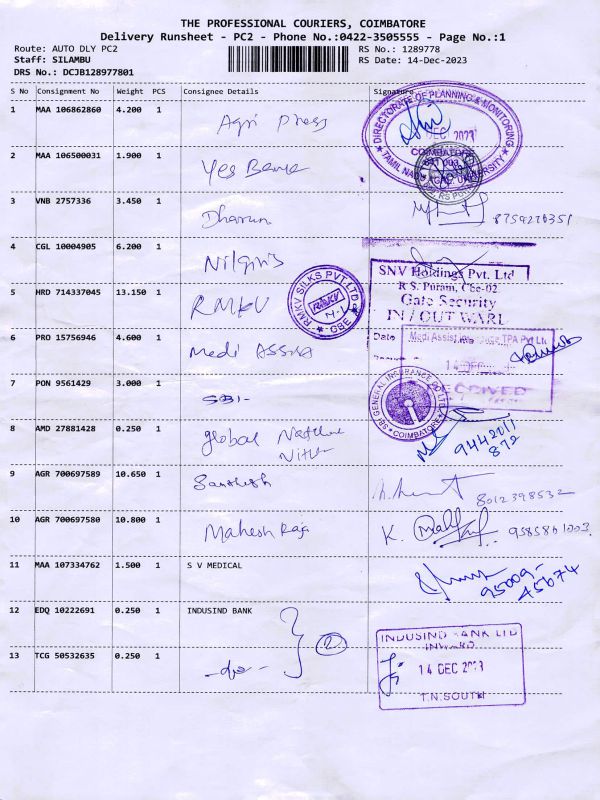 THE PROFESSIONAL COURIERS, COIMBATORE
Delivery Runsheet - PC2 - Phone No.:0422-3505555 - Page No.:1
Route: AUTO DLY PC2
Staff: SILAMBU
DRS No.: DCJB128977801
RS No.: 1289778
RS Date: 14-Dec-2023
S No Consignment No Weight PCS Consignee Details Signature
1 MAA 106862860 4.200 1 Agri Press
DIRECTORATE OF PLANNING & MONITORING
DEC 2023
COIMBATORE
641 003
TAMIL NADU AGRL UNIVERSITY
2 MAA 106500031 1.900 1 Yes Bank
3 VNB 2757336 3.450 1 Dharun 8754270351
4 CGL 10004905 6.200 1 Nilgiris
SNV Holdings Pvt. Ltd
R S. Puram, Cbe-02
Gate Security
IN / OUT WARD
Date
5 HRD 714337045 13.150 1 RMKV
RMKV SILKS PVT LTD
RMKV
N-1
CBE
6 PRO 15756946 4.600 1 Medi Assist
Medi Assist TPA Pvt Ltd
14 DEC
RECEIVED
7 PON 9561429 3.000 1 SBI-
SBI GENERAL INSURANCE CO LTD
COIMBATORE
8 AMD 27881428 0.250 1 global
9442011
872
9 AGR 700697589 10.650 1 Santhosh 8012398532
10 AGR 700697580 10.800 1 Mahesh Raja K. 9585861003
11 MAA 107334762 1.500 1 S V MEDICAL
95009-
45674
12 EDQ 10222691 0.250 1 INDUSIND BANK
2
13 TCG 50532635 0.250 1 -do-
INDUSIND BANK LTD
INWARD
14 DEC 2023
T.N.SOUTH